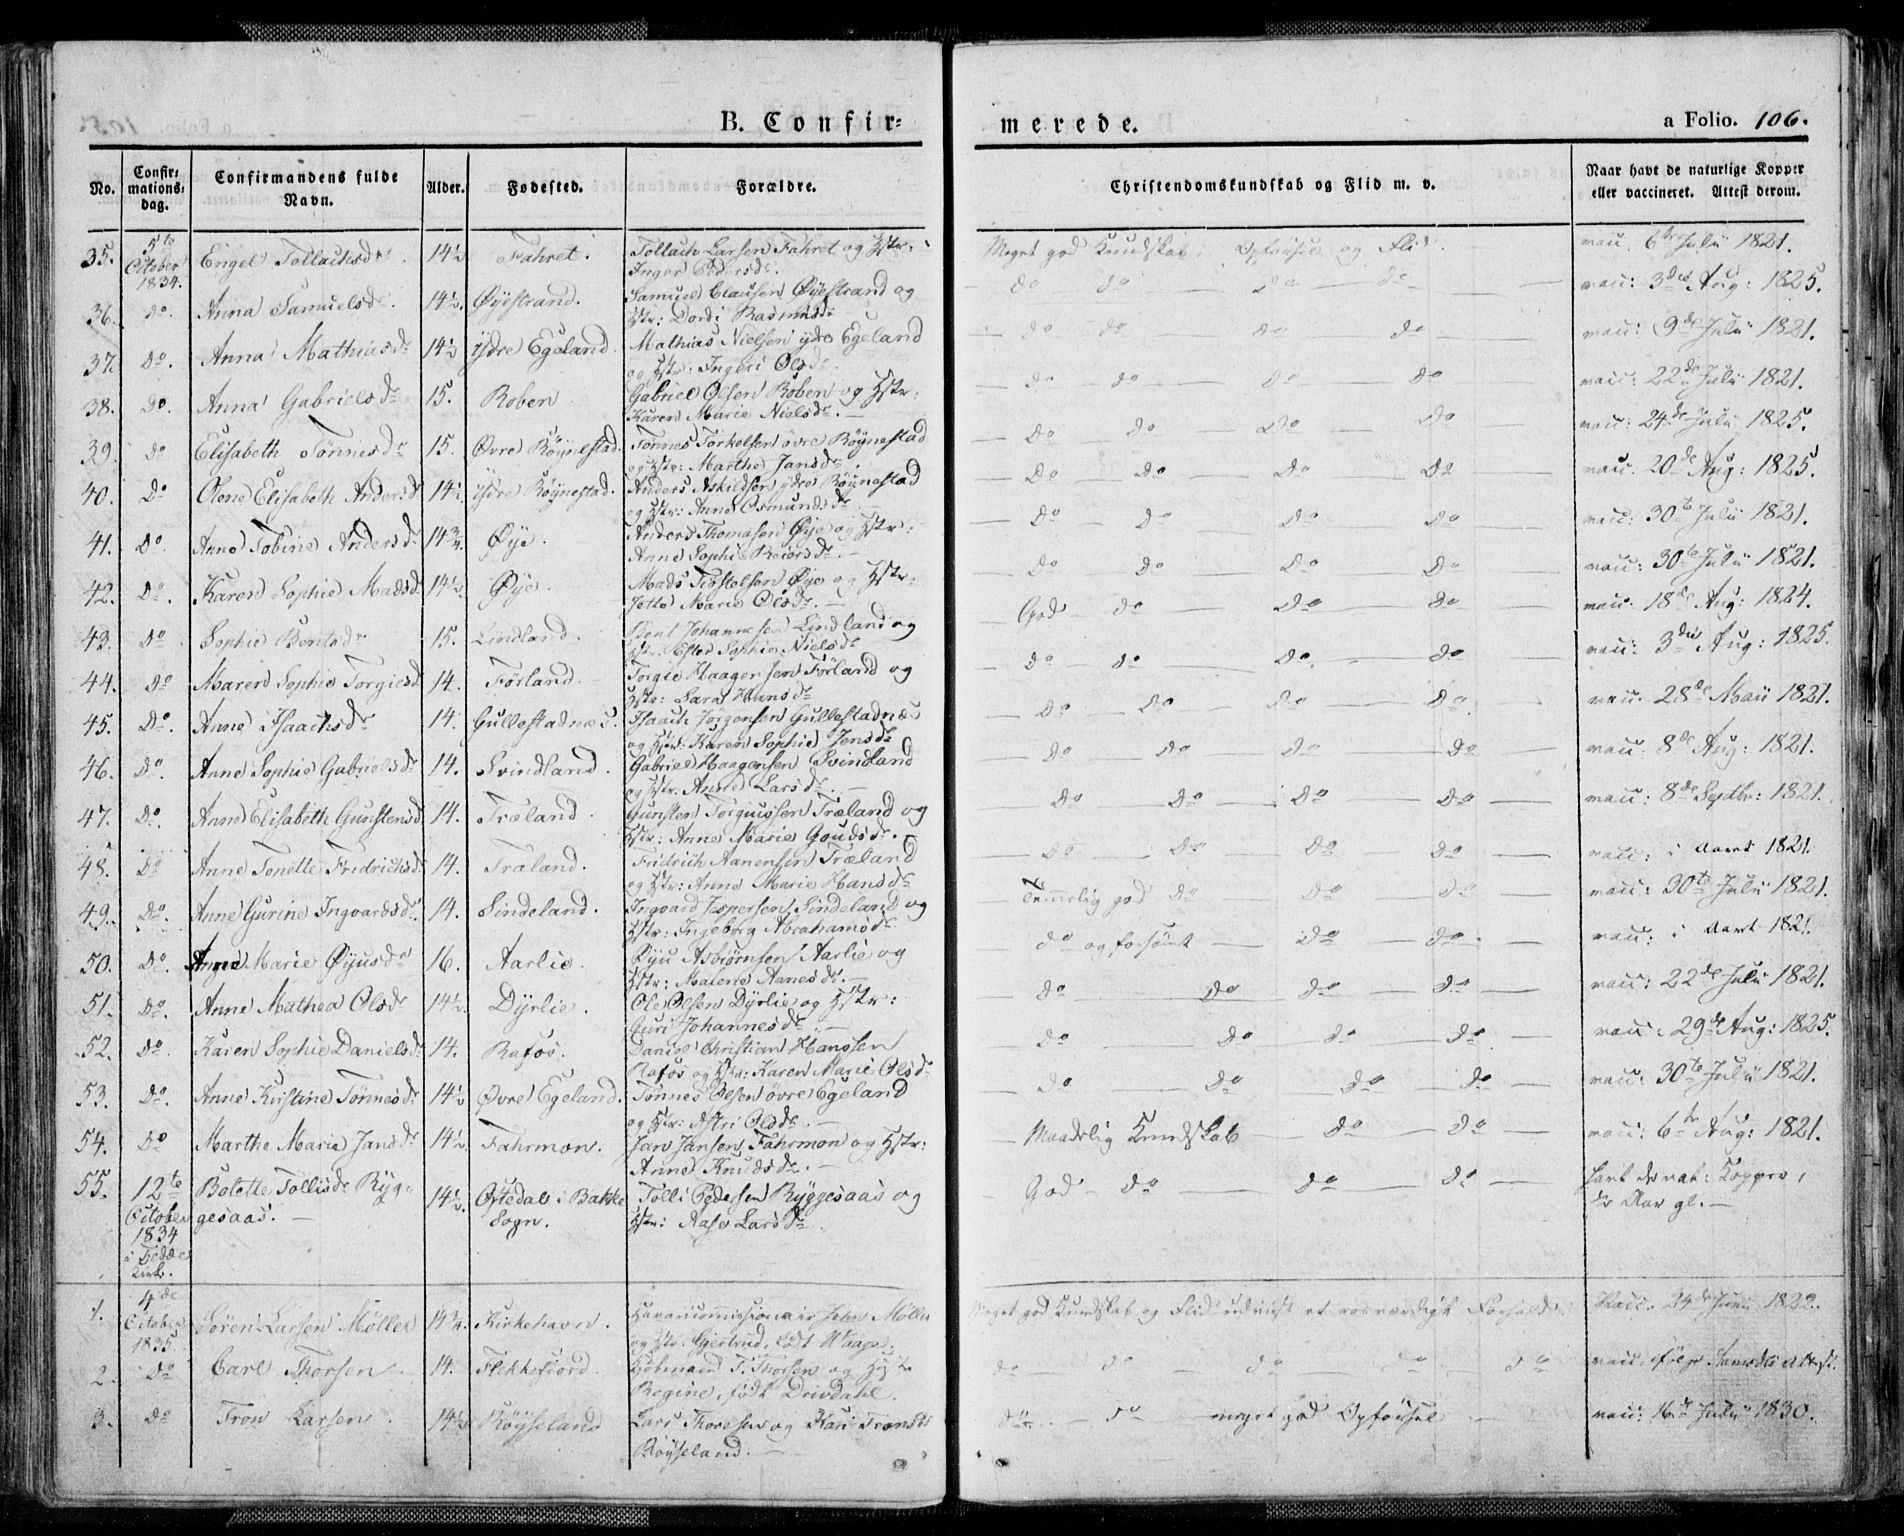 B. Confir=
merede.
a Folio. 106.
No.
Confir=
mations=
dag.
Confirmandens fulde
Navn.
Alder.
Fødested.
Forældre.
Christendomskundskab og Flid m. v.
Naar havt de naturlige Kopper
eller vaccineret. Attest derom.
35. 5te October 1834. Engel Tollachsdr. 14½ Fahret. Tollach Larsen Fahret og Hstr:
Inger Pedersdr. Meget god Kundskab, Opførsel og Flid. vacc. 6te Julii 1821.
36. Do. Anna Samuelsdr. 14½. Øyestrand. Samuel Clausen Øyestrand og
Hstr: Dordi Rasmusdr. Do Do Do Do vacc: 3die Aug: 1825.
37. Do. Anna Mathiasdr 14½ Ysdre Egeland. Mathias Nielsen ydre Egeland
og Hstr: Ingeri Olsdr. Do Do Do Do vacc: 9de Julii 1821.
38. Do. Anna Gabrielsdr 15. Roben. Gabriel Olsen Roben og Hstr:
Karen Marie Nielsdr. Do Do Do Do vacc: 22de Julii 1821.
39. Do Elisabeth Tønnesdr 15. Øvre Røynestad. Tønnes Torkelsen øvre Røynestad
og Hstr: Marthe Jansdr. Do Do Do Do vacc: 24de Julii 1825.
40. Do Olene Elisabeth Andersd 14½ Ysdre Røynestad. Anders Askildsen ydre Røynestad
og Hstr: Anne Osmundsdr Do Do Do Do vacc: 20de Aug: 1825.
41. Do. Anne Tobine Andersdr 14¾. Øye. Anders Thomasen Øye og Hstr:
Anne Sophie Reiersdr. Do Do Do Do vacc: 30te Julii 1821.
42. Do. Karen Sophie Madsd. 14½. Øye. Mads Tostelsen Øye og Hstr:
Marie Olsdr. Do Do Do Do vacc: 30te Julii 1821.
43. Do Sophie Bentsdr 15. Lindland. Bent Johannesen Lindland og
Hstr. Ester Sophie Nielsdr God Do Do Do vacc: 18de Aug: 1824.
44. Do Maren Sophie Torgiesd. 14. Førland. Torgie Haagensen Førland og
Hstr: Sara Hansdr Do Do Do Do vacc: 3die Aug: 1825.
45. Do. Anne Isaachsdr 14. Gullestadnes. Isaach Jørgensen Gullestadnæs
og Hstr: Karen Sophie Jensdr Do Do Do Do. vacc: 28de Maii 1821.
46. Do. Anne Sophie Gabrielsdr 14. Svindland. Gabriel Haagensen Svindland
og Hstr: Anne Larsdr. Do Do Do Do vacc: 8de Aug: 1821.
47. Do. Anne Elisabeth Gunstensd. 14. Træland. Gunsten Torgiussen Træland og
Hstr: Anne Marie Goudsdr. Do Do Do Do vacc: 8de Septbr: 1821.
48. Do Anne Tonette Fridrichsd. 14. Træland. Fridrich Aanensen Træland
og Hstr: Anne Marie Hansdr Do Do Do Do vacc: i Aaret 1821.
49. Do. Anne Gurine Ingvardsdr. 14. Sindeland. Ingvard Jespersen Sindeland og
Hstr: Ingeborg Abrahamsdr Temmelig god Do Do Do vacc: 30te Julii 1821.
50. Do. Anne Marie Øyusdr 16. Aarlie. Øyu Asbiørnsen Aarlie og
Hstr: Malene Aanesdr. Do og forsømt Do Do. vacc: i Aaret 1821.
51. Do. Anne Mathea Olsdr 14½. Dyrlie. Ole Olsen Dyrlie og Hstr:
Guri Johannesdr. Do Do Do Do vacc: 22de Julii 1821.
52. Do. Karen Sophie Danielsdr 14. Rafos. Daniel Christian Hanssen
Rafos og Hstr: Karen Marie Olsdr Do Do Do Do vacc: 29de Aug: 1825.
53. Do. Anne Kirstine Tønnesdr 14½ Øvre Egeland. Tønnes Olsen øvre Egeland
og Hstr: Astri Olsdr. Do Do Do Do vacc: 30te Julii 1821.
54. Do Marthe Marie Jansdr 14½. Fahrmon. Jan Jansen Fahrmon og Hstr:
Anne Knudsdr. Maadelig Kundskab Do Do vacc: 6te Aug: 1821.
55. 12te October 1834 i Fedde Kirke. Bolette Tollisdr Ryg=
gesaas. 14½. Østedal i Bakke
Sogn. Tolli Pedersen Ryggesaas og
Hstr: Aase Larsdr. God Do Do Do havt de nat: Kopper,
½ Aar gl.
1. 4de October 1835. Sören Larsen Möller 14¾. Kirkehavn. Havariecommissionair John Möller
og Hstr: Gjertrud, født Waage. Meget god Kundskab og Flid, udviist et rosværdigt Forhold. Vacc. 24de Junii 1822.
2. Do Carl Thorsen 14. Flekkefiord. Kjøbmand T. Thorsen og Hstr
Regine, født Drivdahl. Do Do Do Do Do vacc: ifølge Attest.
3. Do Tron Larsen 14½ Røyseland Lars Thoresen og Kari Tronsdr
Røyseland. Do Do meget god Opførsel vacc: 16de Julii 1830.